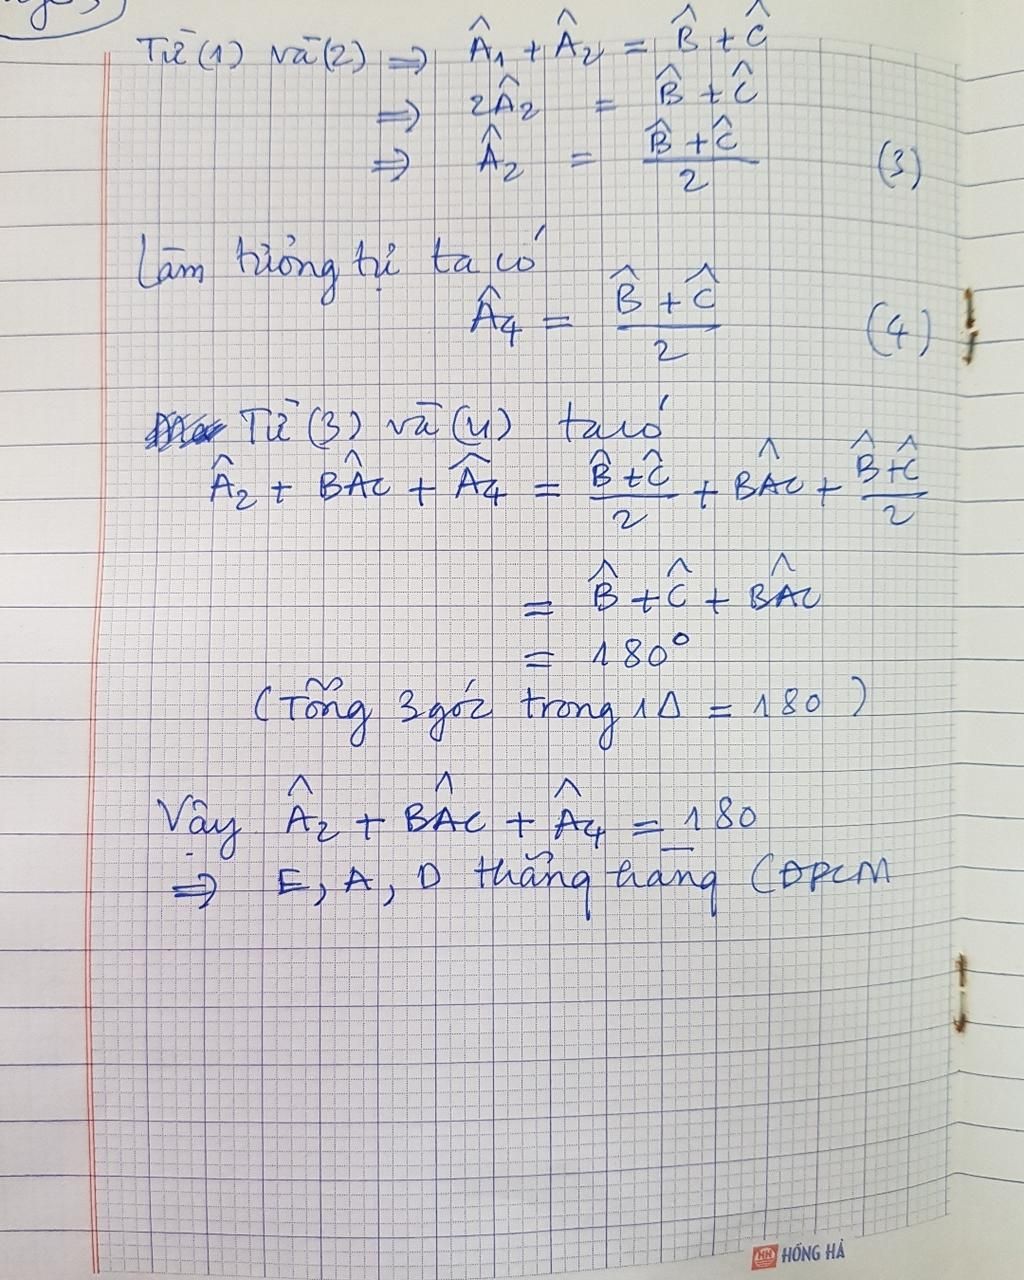 Từ (1) và (2) ⇒ Â₁ + Â₂ = B̂ + Ĉ
⇒ 2Â₂ = B̂ + Ĉ
⇒ Â₂ = (B̂ + Ĉ)/2 (3)
Làm tương tự ta có
Â₄ = (B̂ + Ĉ)/2 (4)
Từ (3) và (4) ta có
Â₂ + BÂC + Â₄ = (B̂ + Ĉ)/2 + BÂC + (B̂ + Ĉ)/2
= B̂ + Ĉ + BÂC
= 180°
(Tổng 3 góc trong 1Δ = 180)
Vậy Â₂ + BÂC + Â₄ = 180
⇒ E, A, D thẳng hàng (ĐPCM
HH HỒNG HÀ